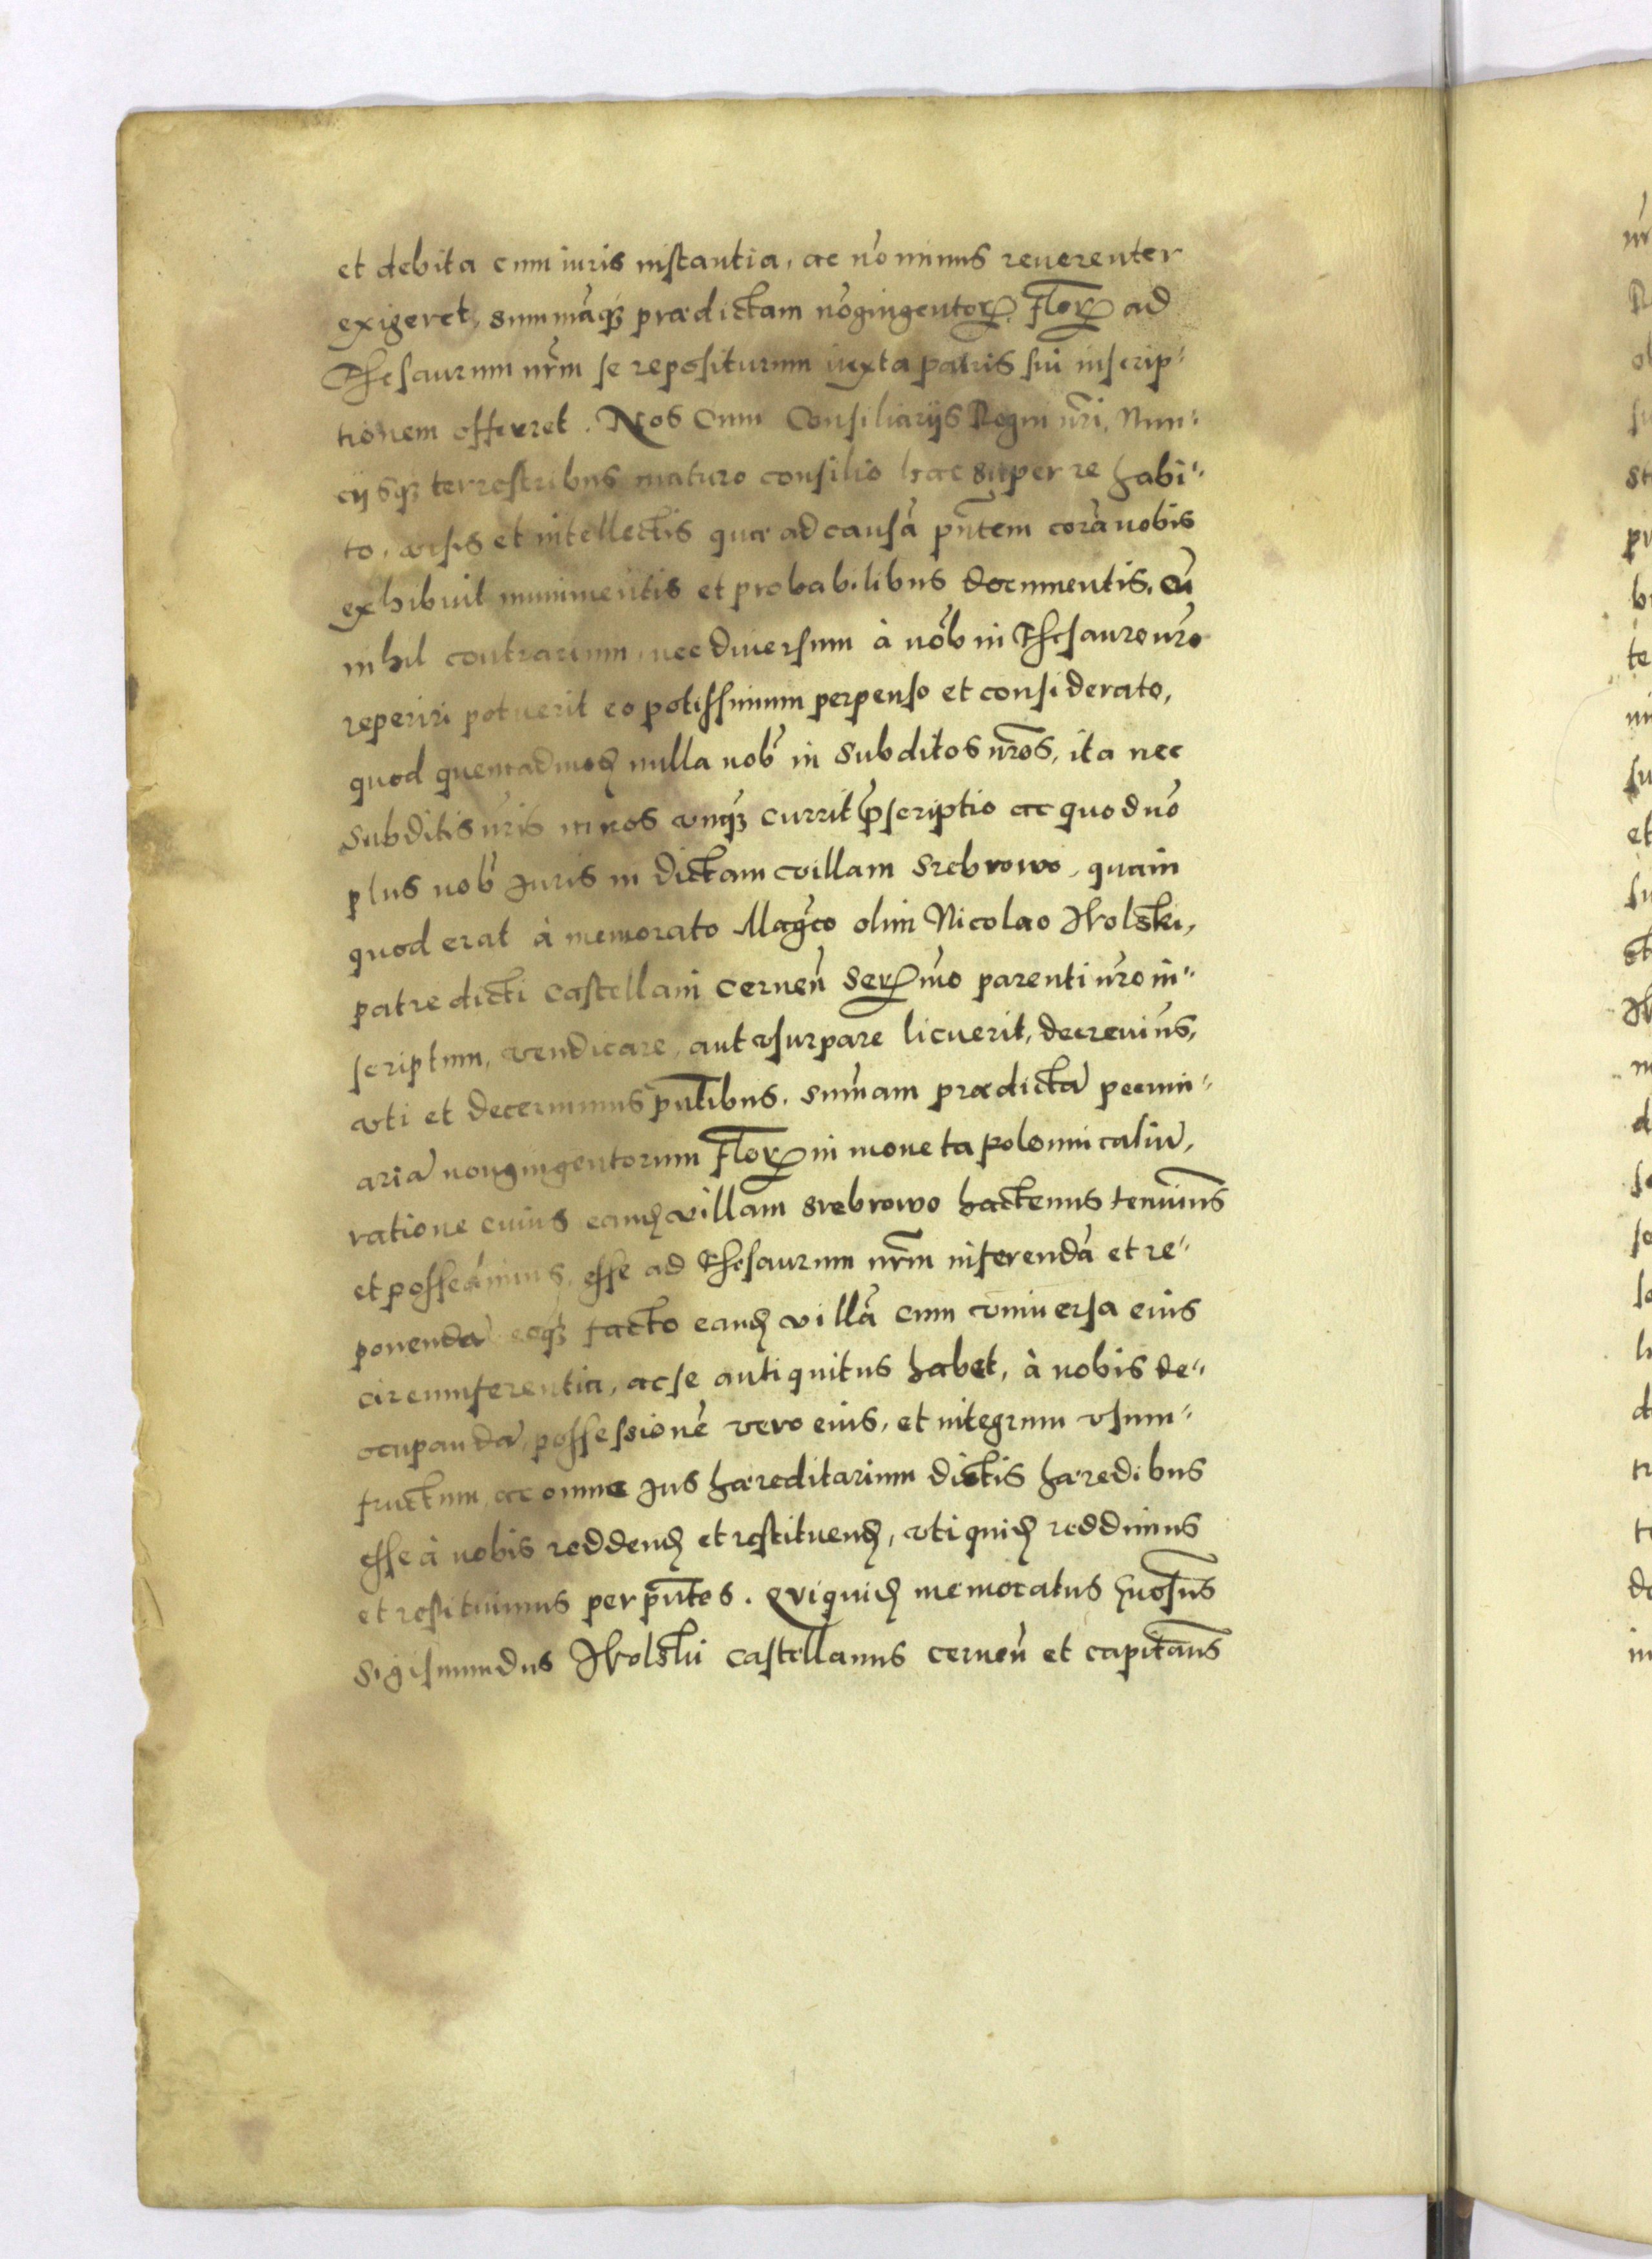 et debita cum iuris instantia, ac nõ minus reuerenter
exigeret, summãq3 prædictam nõgingentoꝝ. Floꝝ ad
Thesaurum nr̃m se repositurum iuxta patris sui inscrip-
tionem offerret. Nos cum Consiliarijs Regni nr̃i, Nun-
cijsq3 terrestribus maturo consilio hac super re habi-
to, visis et intellectis quæ ad causã pñtem corã nobis
exhibuit munimentis et probabilibus documentis. cũ
nihil contrarium, nec diuersum à nõb in Thesauro nr̃o
reperiri potuerit eo potissimum perpenso et considerato,
quod quemadmoδ nulla nob̃ in subditos nr̃os, ita nec
subditis nr̃is in nos vnq3 currit p̃scriptio ac quod nõ
plus nob̃ Juris in dictam villam Srebrowo, quam
quod erat à memorato Mag̃co olim Nicolao Wolski,
patre dicti Castellani Cerneñ Serꝫmo parenti nr̃o in-
scriptum, vendicare, aut vsurpare licuerit, decreuim̃s,
vti et decernimus pñtibus. sum̃am prædictã pecuni-
ariã nongingentorum Floꝝ in moneta polonnicaliũ,
ratione cuius eanδ villam srebrowo hactenus tenuim̃s
et possedimus, esse ad Thesaurum nr̃m inferendã et re-
ponendã eoq3 facto eanδ villã cum vniuersa eius
circumferentia, ac se antiquitus habet, à nobis de-
ocupandã, possessionẽ vero eius, et integrum vsum-
fructum, ac omne Jus hæreditarium dictis hæredibus
esse à nobis reddenδ et restituenδ, vti quiδ reddimus
et restituimus per pñtes. Qui quiδ memoratus Gnosũs
Sigismundus Wolski Castellanus cerneñ et capitañs